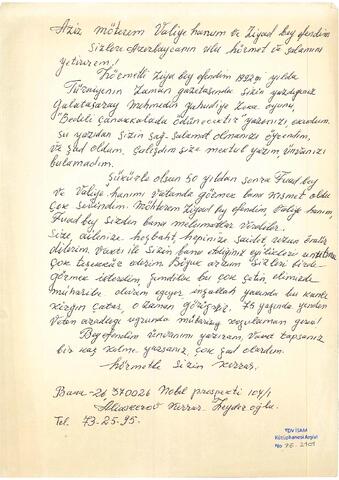 Aziz möterem Valiye hanım ve Ziyad bey efendim
Sizlere Azerbaycanın ulu hörmet ve salamını
yetirirem!
Hörmetli Ziya bey efendim 1992çi yılda
Türkiyenin Zaman gazetasında sizin yazdığınız
Galatasaray
"Bedeli Çanakkalada ödünecektir" yazınızı okudum.
su yazıdan sizin sağ-salamat olmanızı öğrendim,
ve şad oldum. Çalışdım size mektub yazım, ünvanızı
bulamadım.
Şükürle olsun 50 yıldan sonra Fuad bey
ve Valiye hanımı vatanda görmek bana kısmet oldu
çok sevindim. Möhterem Ziyad bey efendim, Valiye hanım,
Fuad bey sizden bana melumatlar verdiler.
Size ailenize hoşbaht, hepinize saadet, uzun ömür
dilerim. Vaxtı ile sizin bana etdiğiniz eyilikleri unutmam
çok teşekkür ederim Böyük arzum Sizleri
görmek isterdim, Şimdilik bu çok çetin, elimizde
müharibe davam ediyor inşallah yakında bu kanlı
kırgın çatar, o zaman görüşürüz. 75 yaşında yeniden
Veten azadlığı uğrunda mübarize
Beyefendim ünvanımı yazıram, Vaxt tapsanız
bir kaç kalme yazsanız, çok şad olardım.
hörmetle sizin
Baku-26 370026 Nobel prospekti 104/1
Heyder oğlu
Tel. 73-25-95.
TDV İSAM
Kütüphanesi Arşivi
No